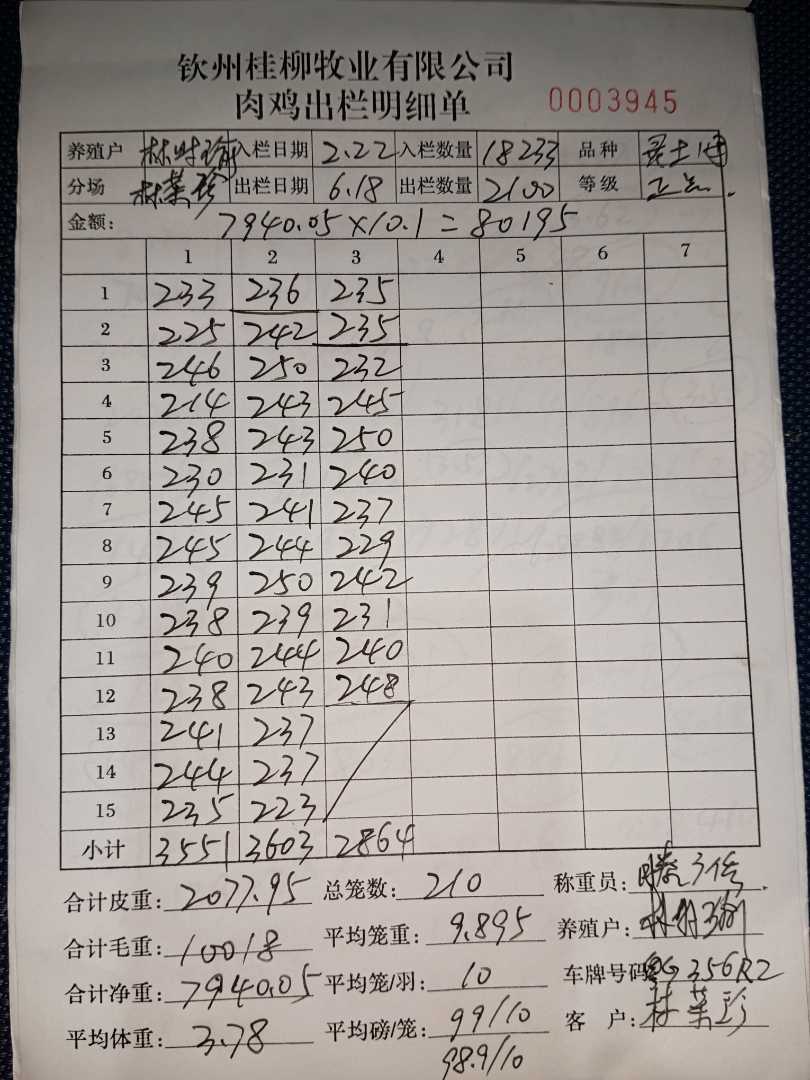 钦州桂柳牧业有限公司
肉鸡出栏明细单 0003945
养殖户 入栏日期 2.22 入栏数量 18233 品种
分场 林荣珍 出栏日期 6.18 出栏数量 2100 等级 正
金额: 7940.05×10.1=80195
1 2 3 4 5 6 7
1 233 236 235
2 225 242 235
3 246 250 232
4 214 243 245
5 238 243 250
6 230 231 240
7 245 241 237
8 245 244 229
9 239 250 242
10 238 239 231
11 240 244 240
12 238 243 248
13 241 237
14 244 237
15 235 223
小计 3551 3603 2864
合计皮重: 2077.95 总笼数: 210 称重员:
合计毛重: 10018 平均笼重: 9.895 养殖户:
合计净重: 7940.05 平均笼/羽: 10 车牌号码 356R2
平均体重: 3.78 平均磅/笼: 99/10 客 户: 林荣珍
98.9/10